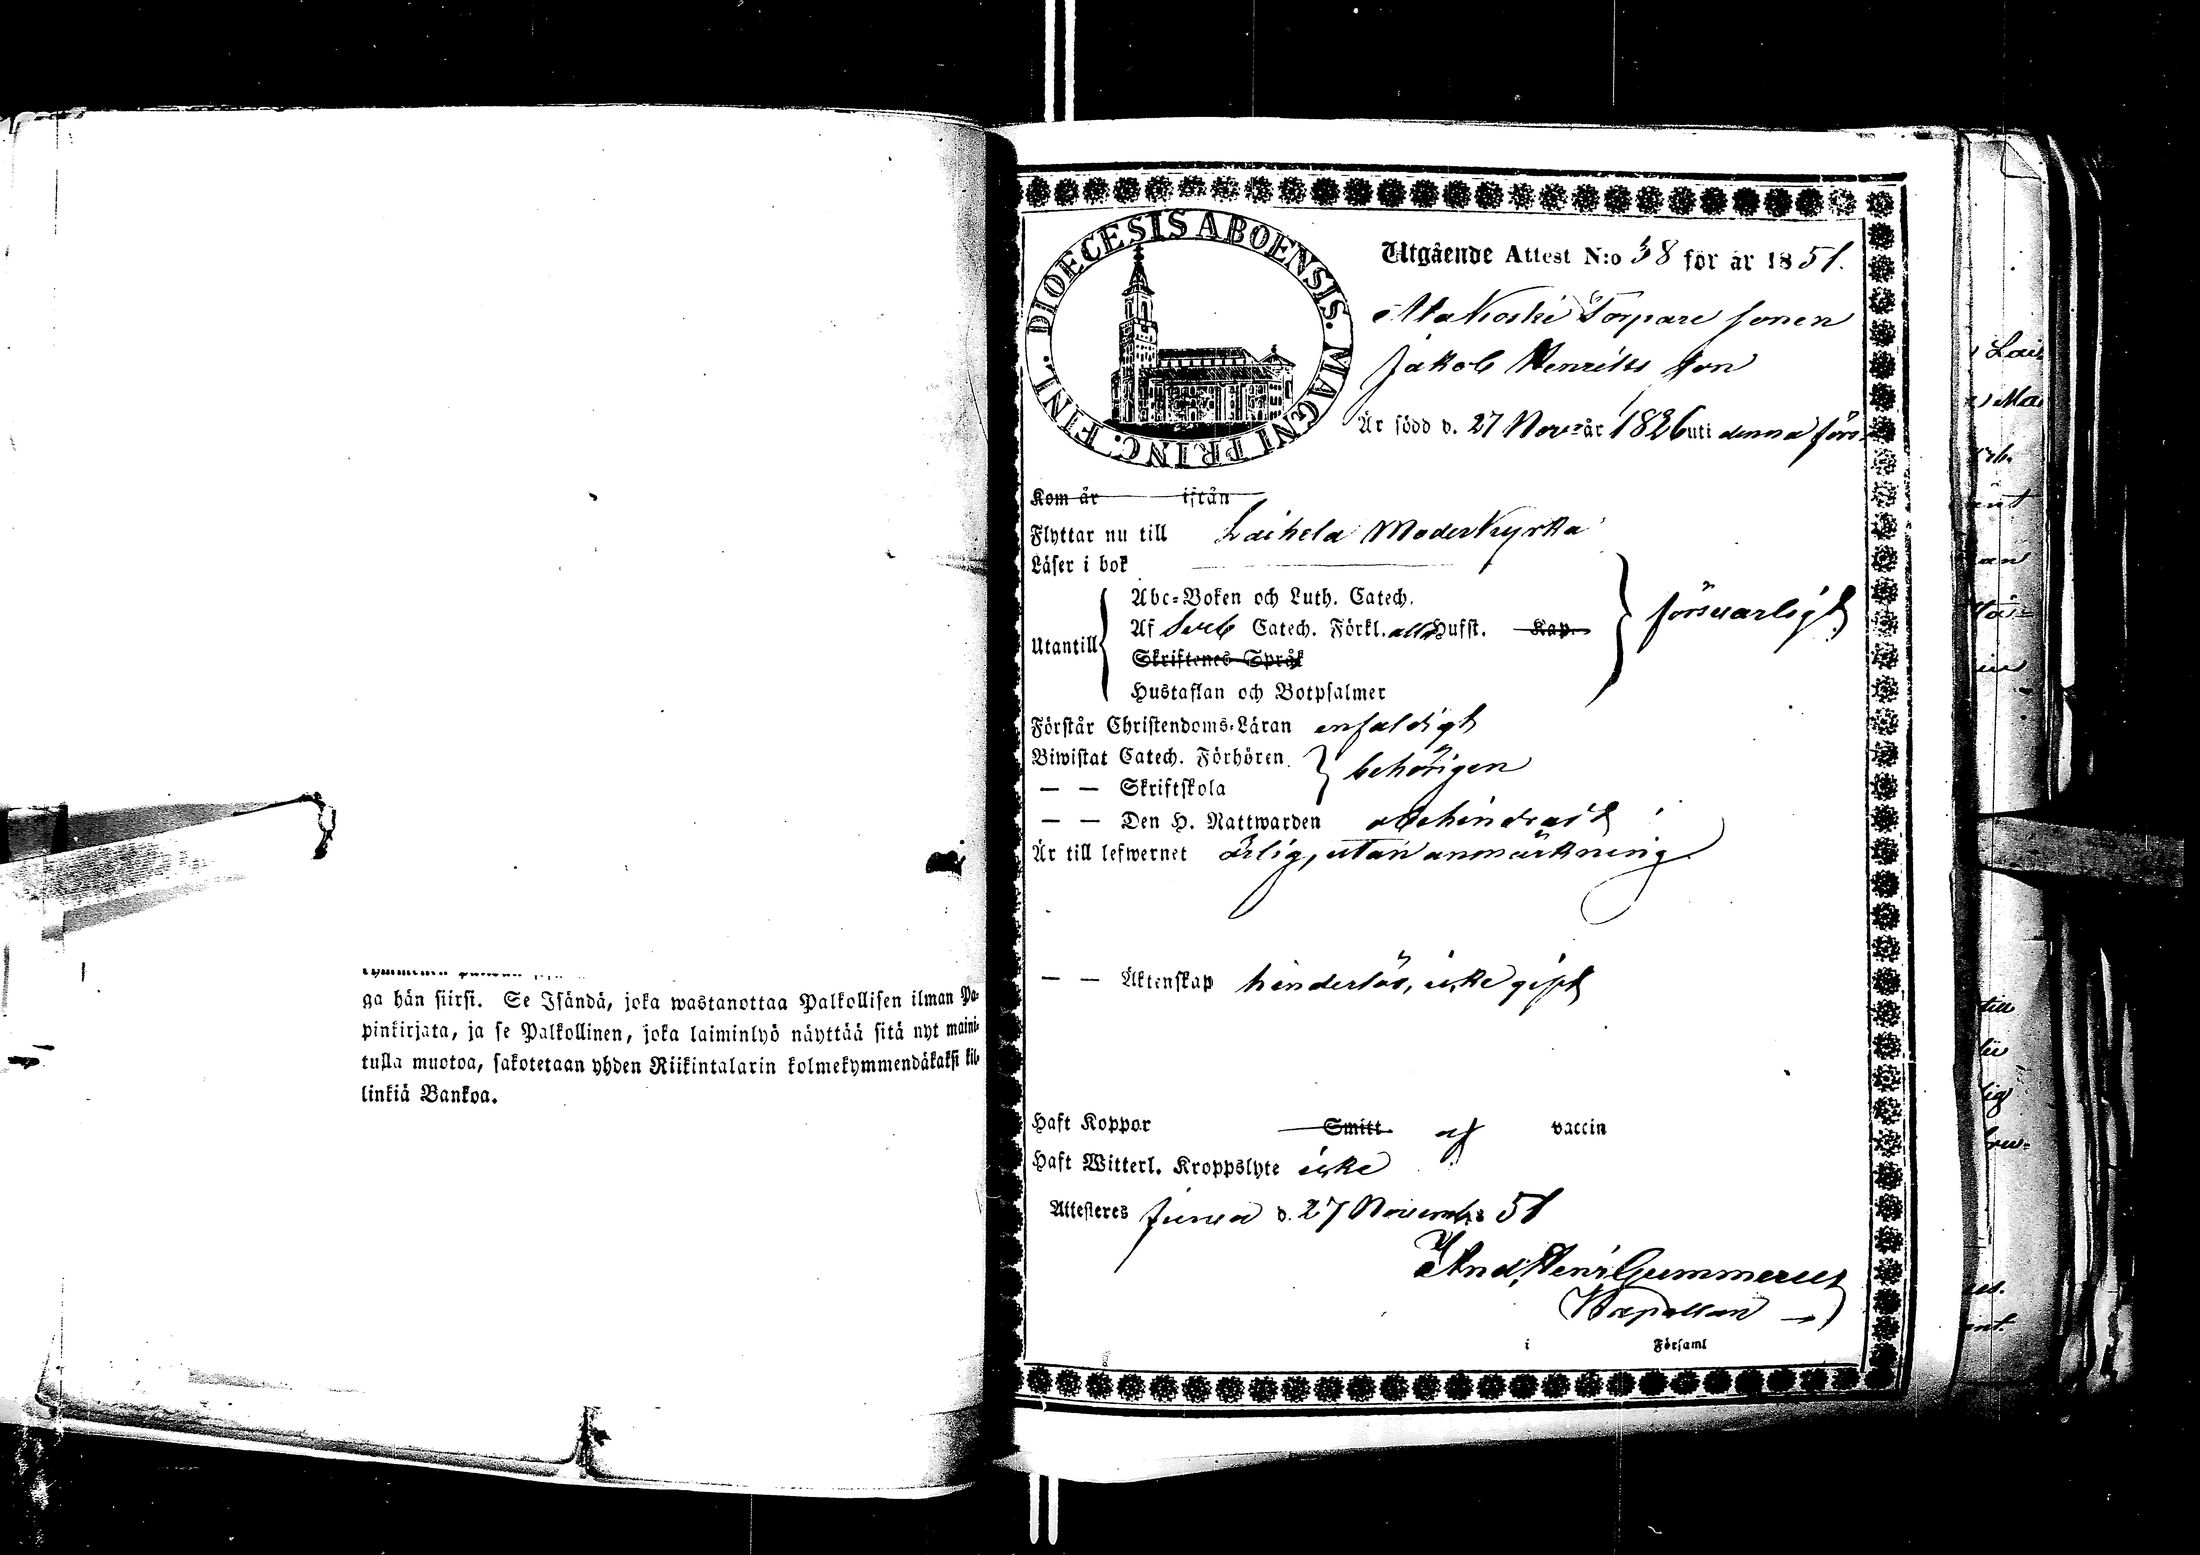 ga hän siirsi. Se Isändä, joka wastanottaa Palkollisen ilman Pa-
pinkirjata, ja se Palkollinen, joka laiminlyö näyttää sitä nyt maini-
tulla muotoa, sakotetaan yhden Riikintalarin kolmekymmendäkaksi kil-
linkiä Bankoa.
DIOECESIS ABOENSIS. MAGNI PRINC. FINL.
Utgående Attest N:o 38 för år 1851.
Torpare sonen
Jakob Henriks son
Är född d. 27 Novr år 1826 uti denna förs.
Kom år ifrån
Flyttar nu till Laihela Moderkyrka
Läser i bok
Abc-Boken och Luth. Catech.
Utantill Af Sveb Catech. Förkl. alla Hufst. Kap. försvarligt
Skriftenes Språk
Hustaflan och Botpsalmer
Förstår Christendoms-Läran enfaldigt
Biwistat Catech. Förhören behörigen
— — Skriftskola
— — Den H. Nattwarden obehindradt
Är till lefwernet ärlig, utan anmärkning
— — Äktenskap hinderlös, icke gift
Haft Koppor Smitt af vaccin
Haft Witterl. Kroppslyte icke
Attesteres Jurva d. 27 Novemb. 51
And. Henr. Gummerus
Kapellan
i Församl